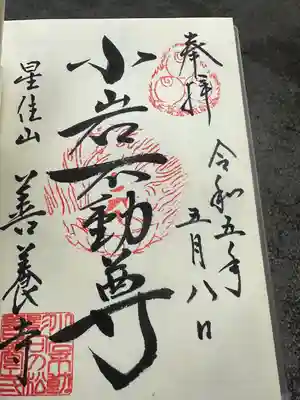 奉拝
令和五年
五月八日
小岩不動尊
星住山
善養寺